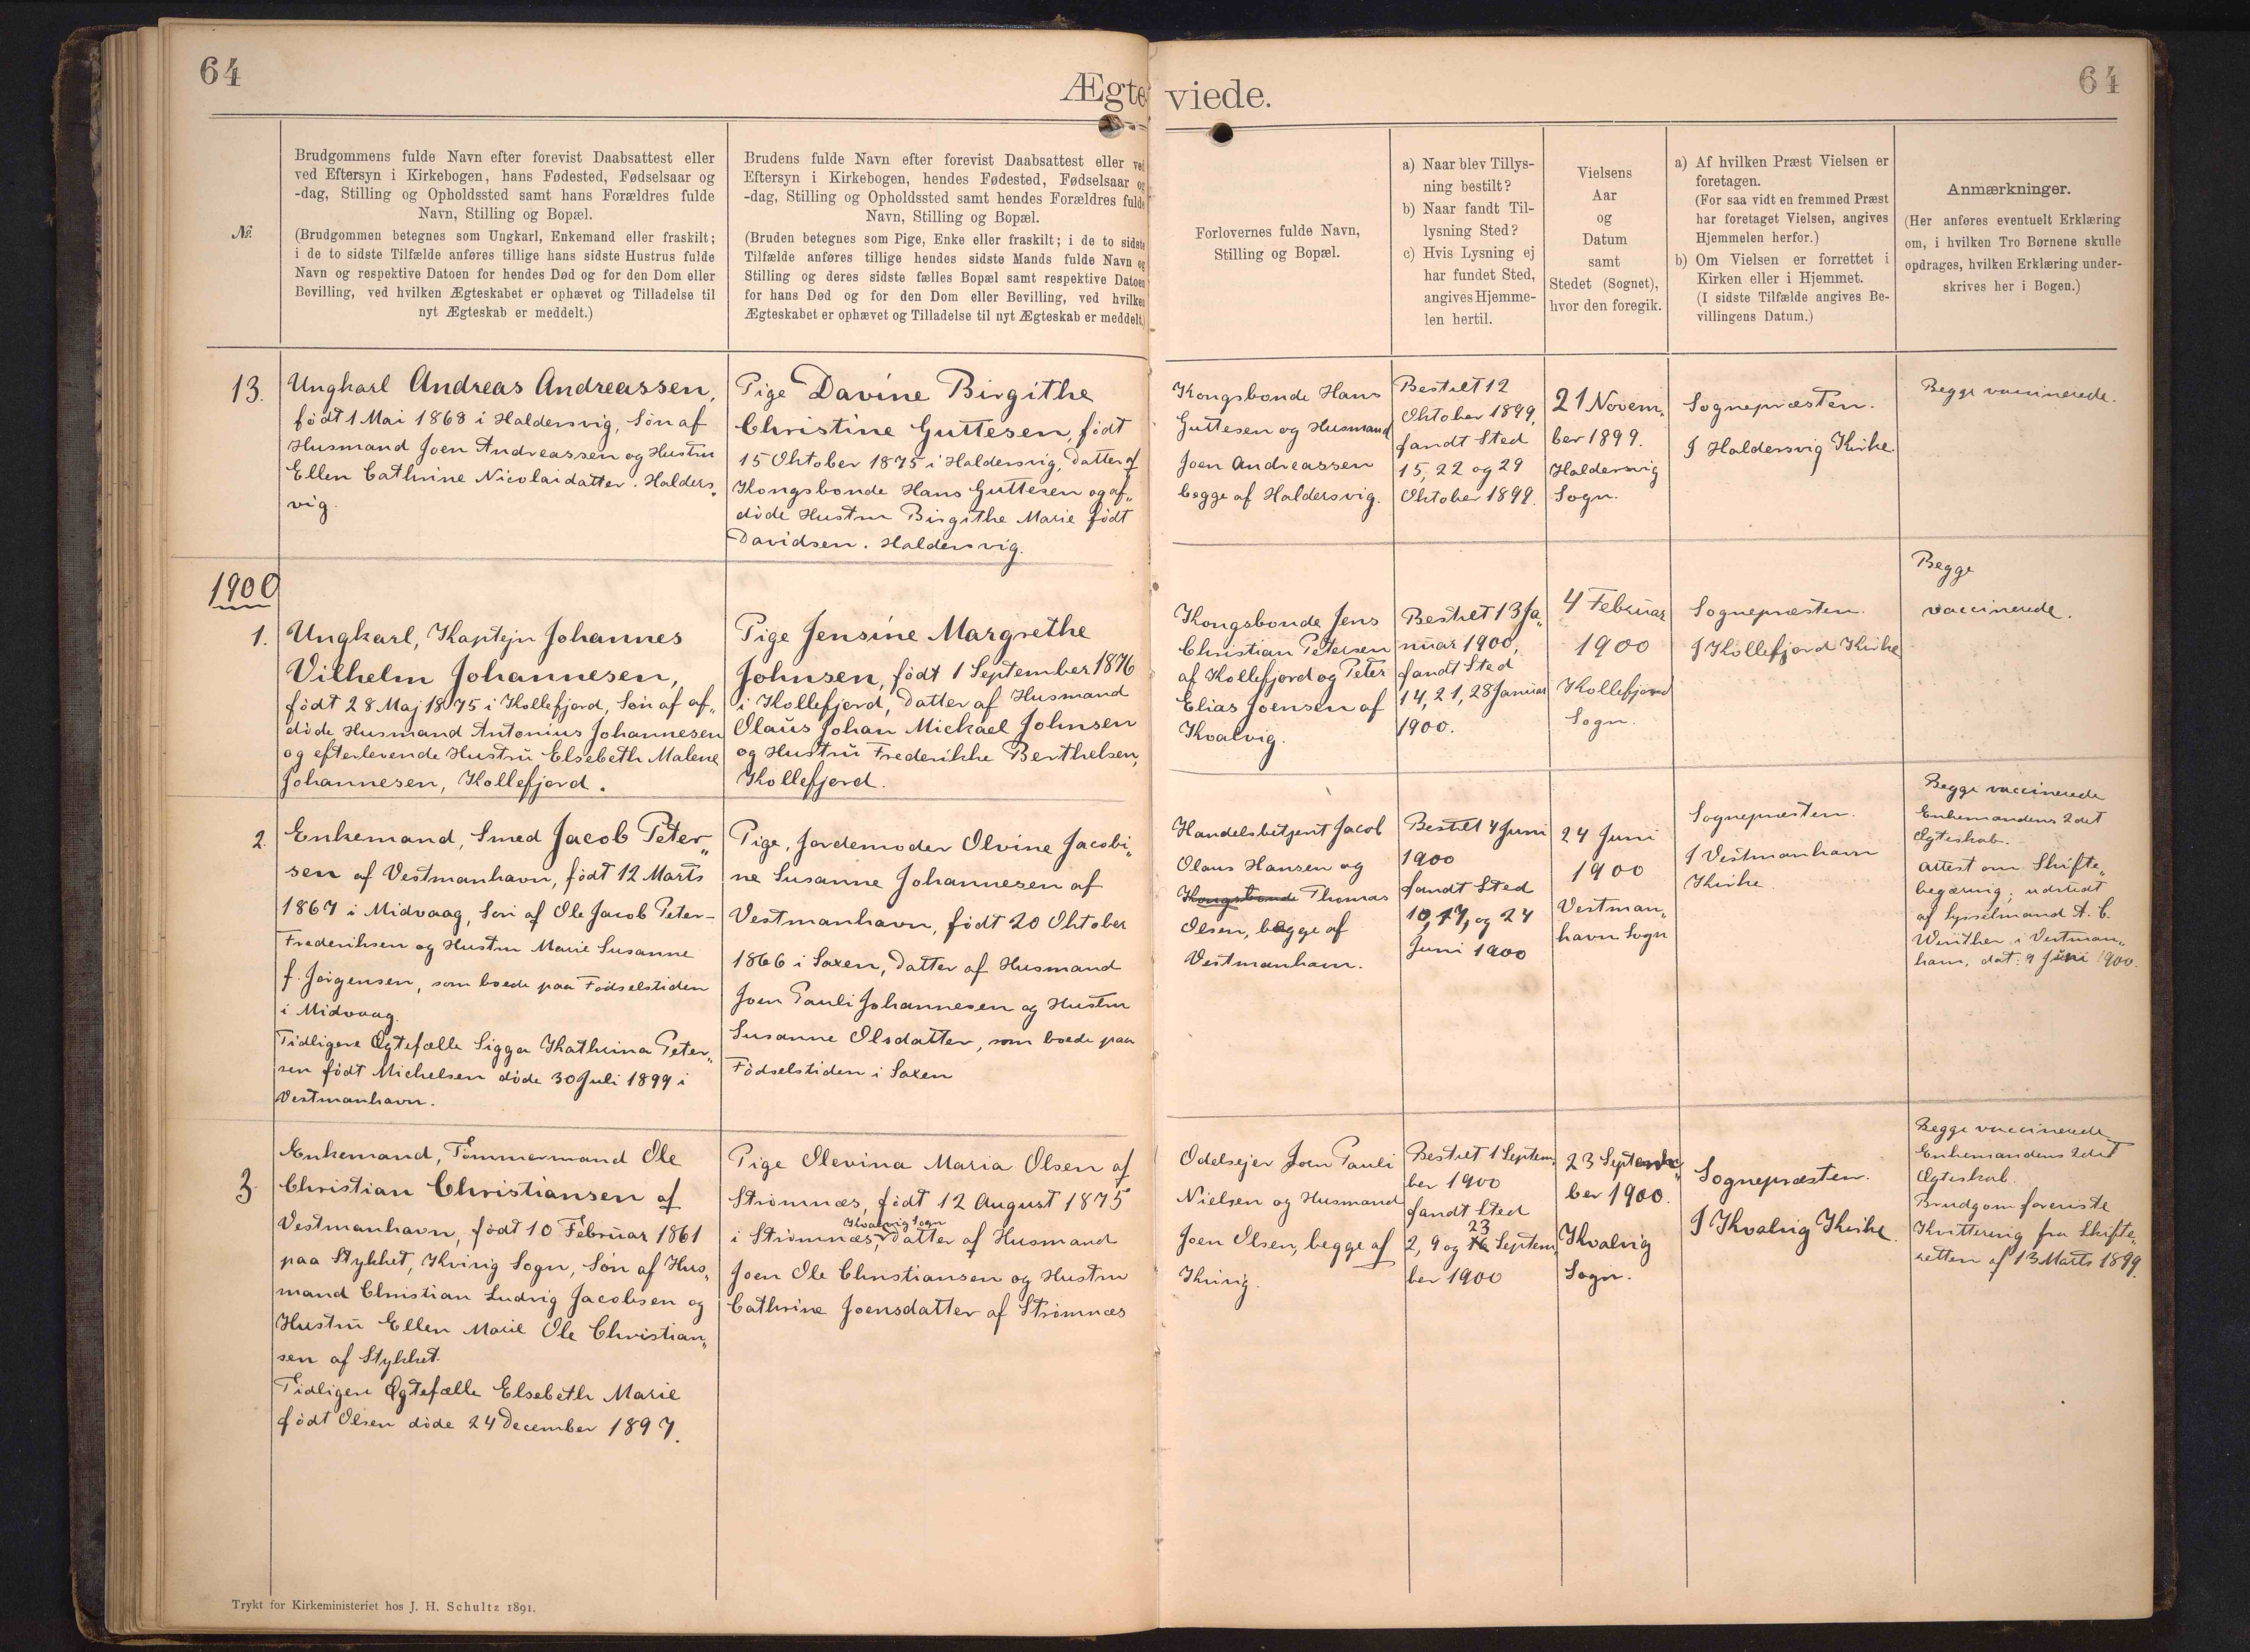 64
Ægteviede.
64
No.
Brudgommens fulde Navn efter forevist Daabsattest eller
ved Eftersyn i Kirkebogen, hans Fødested, Fødselsaar og
-dag, Stilling og Opholdssted samt hans Forældres fulde
Navn, Stilling og Bopæl.
(Brudgommen betegnes som Ungkarl, Enkemand eller fraskilt;
i de to sidste Tilfælde anføres tillige hans sidste Hustrus fulde
Navn og respektive Datoen for hendes Død og for den Dom eller
Bevilling, ved hvilken Ægteskabet er ophævet og Tilladelse til
nyt Ægteskab er meddelt.)
Brudens fulde Navn efter forevist Daabsattest eller ved
Eftersyn i Kirkebogen, hendes Fødested, Fødselsaar og
-dag, Stilling og Opholdssted samt hendes Forældres fulde
Navn, Stilling og Bopæl.
(Bruden betegnes som Pige, Enke eller fraskilt; i de to sidste
Tilfælde anføres tillige hendes sidste Mands fulde Navn og
Stilling og deres sidste fælles Bopæl samt respektive Datoen
for hans Død og for den Dom eller Bevilling, ved hvilken
Ægteskabet er ophævet og Tilladelse til nyt Ægteskab er meddelt.)
Forlovernes fulde Navn,
Stilling og Bopæl.
a) Naar blev Tillys-
ning bestilt?
b) Naar fandt Til-
lysning Sted?
c) Hvis Lysning ej
har fundet Sted,
angives Hjemme-
len hertil.
Vielsens
Aar
og
Datum
samt
Stedet (Sognet),
hvor den foregik.
a) Af hvilken Præst Vielsen er
foretagen.
(For saa vidt en fremmed Præst
har foretaget Vielsen, angives
Hjemmelen herfor.)
b) Om Vielsen er forrettet i
Kirken eller i Hjemmet.
(I sidste Tilfælde angives Be-
villingens Datum.)
Anmærkninger.
(Her anføres eventuelt Erklæring
om, i hvilken Tro Børnene skulle
opdrages, hvilken Erklæring under-
skrives her i Bogen.)
13.
Ungkarl Andreas Andreassen,
født 1 Mai 1868 i Haldersvig, Søn af
Husmand Joen Andreassen og Hustru
Ellen Cathrine Nicolaidatter. Halders„
vig.
Pige Davine Birgithe
Christine Guttesen, født
15 Oktober 1875 i Haldersvig, Datter af
Kongsbonde Hans Guttesen og af„
døde Hustru Birgithe Marie født
Davidsen. Haldersvig.
Kongsbonde Hans
Guttesen og Husmand
Joen Andreassen
begge af Haldersvig.
Bestilt 12
Oktober 1899,
fandt Sted
15, 22 og 29
Oktober 1899.
21 Novem„
ber 1899.
Haldersvig
Sogn.
Sognepræsten.
I Haldersvig Kirke.
Begge vaccinerede.
1900
1.
Ungkarl, Kaptejn Johannes
Vilhelm Johannesen,
født 28 Maj 1875 i Kollefjord, Søn af af„
døde Husmand Antonius Johannesen
og efterlevende Hustru Elsebeth Malene
Johannesen, Kollefjord.
Pige Jensine Margrethe
Johnsen, født 1 September 1876
i Kollefjord, Datter af Husmand
Olaus Johan Mickael Johnsen
og Hustru Frederikke Berthelsen,
Kollefjord.
Kongsbonde Jens
Christian Petersen
af Kollefjord og Peter
Elias Joensen af
Kvalvig.
Bestilt 13 Ja„
nuar 1900,
fandt Sted
14, 21, 28 Januar
1900.
4 Februar
1900
Kollefjord
Sogn.
Sognepræsten.
I Kollefjord Kirke
Begge
vaccinerede.
2.
Enkemand, Smed Jacob Peter„
sen af Vestmanhavn, født 12 Marts
1867 i Midvaag, Søn af Ole Jacob Peter-
Frederiksen og Hustru Marie Susanne
f. Jørgensen, som boede paa Fødselstiden
i Midvaag.
Tidligere Ægtefælle Sigga Kathrina Peter„
sen født Michelsen døde 30 Juli 1899 i
Vestmanhavn.
Pige, Jordemoder Olvine Jacobi„
ne Susanne Johannesen af
Vestmanhavn, født 20 Oktober
1866 i Saxen, Datter af Husmand
Joen Pauli Johannesen og Hustru
Susanne Olsdatter, som boede paa
Fødselstiden i Saxen
Handelsbetjent Jacob
Olaus Hansen og
Kongsbonde Thomas
Olsen, begge af
Vestmanhavn.
Bestilt 4 Juni
1900
fandt Sted
10, 17, og 24
Juni 1900
24 Juni
1900
Vestman„
havn Sogn
Sognepræsten.
I Vestmanhavn
Kirke.
Begge vaccinerede
Enkemandens 2det
Ægteskab.
Attest om Skifte„
begæring, udstedt
af Sysselmand A. C.
i Vestman„
havn, dat. 9 Juni 1900.
3.
Enkemand, Tømmermand Ole
Christian Christiansen af
Vestmanhavn, født 10 Februar 1861
paa Stykket, Kvivig Sogn, Søn af Hus„
mand Christian Ludvig Jacobsen og
Hustru Ellen Marie Ole Christian„
sen af Stykket.
Tidligere Ægtefælle Elsebeth Marie
født Olsen døde 24 December 1897.
Pige Olevina Maria Olsen af
Strømnæs, født 12 August 1875
Kvalvig Sogn
i Strømnæs, Datter af Husmand
Joen Ole Christiansen og Hustru
Cathrine Joensdatter af Strømnæs
Odelsejer Joen Pauli
Nielsen og Husmand
Joen Olsen, begge af
Kvivig.
Bestilt 1 Septem„
ber 1900
fandt Sted
23
2, 9 og 16 Septem„
ber 1900
23 Septem„
ber 1900.
Kvalvig
Sogn.
Sognepræsten.
I Kvalvig Kirke.
Begge vaccinerede
Enkemandens 2det
Ægteskab.
Brudgom foreviste
Kvittering fra Skifte„
retten af 13 Marts 1899.
Trykt for Kirkeministeriet hos J. H. Schultz 1891.